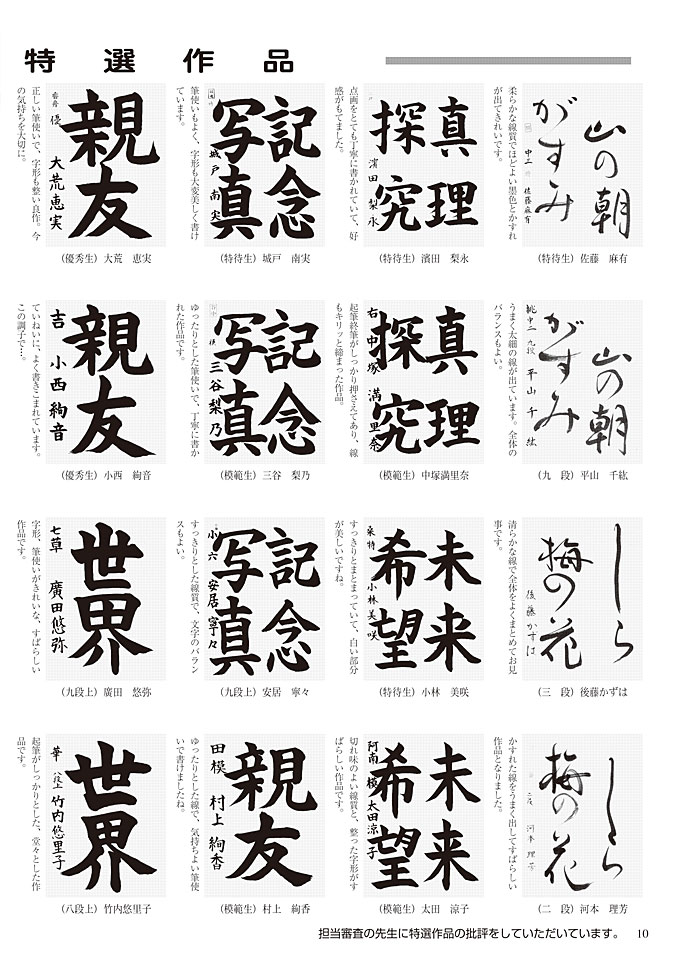 特選作品
山の朝
がすみ
中二 佐藤麻有
柔らかな線質でほどよい墨色とかすれ
が出てきれいです。
(特待生) 佐藤 麻有
真理
探究
濱田梨永
点画をとても丁寧に書かれていて、好
感がもてました。
(特待生) 濱田 梨永
記念
写真
城戸南実
筆使いもよく、字形も大変美しく書け
ています。
(特待生) 城戸 南実
親友
優 大荒恵実
正しい筆使いで、字形も整い良作。今
の気持ちを大切に。
(優秀生) 大荒 恵実
山の朝
がすみ
桃中二 九段 平山千紘
うまく太細の線が出ています。全体の
バランスもよい。
(九 段) 平山 千紘
真理
探究
右 中塚満里奈
起筆終筆がしっかり押さえてあり、線
もキリッと締まった作品。
(模範生) 中塚満里奈
記念
写真
模 三谷梨乃
ゆったりとした筆使いで、丁寧に書か
れた作品です。
(模範生) 三谷 梨乃
親友
吉 小西絢音
ていねいに、よく書きこまれています。
この調子で…。
(優秀生) 小西 絢音
しら
梅の花
後藤かずは
清らかな線で全体をよくまとめてお見
事です。
(三 段) 後藤かずは
未来
希望
桑特 小林美咲
すっきりとまとまっていて、白い部分
が美しいですね。
(特待生) 小林 美咲
記念
写真
小六 安居寧々
すっきりとした線質で、文字のバラン
スもよい。
(九段上) 安居 寧々
世界
七草 廣田悠弥
字形、筆使いがきれいな、すばらしい
作品です。
(九段上) 廣田 悠弥
しら
梅の花
二段 河本理芳
かすれた線をうまく出してすばらしい
作品となりました。
(二 段) 河本 理芳
未来
希望
阿南 模 太田涼子
切れ味のよい線質と、整った字形がす
ばらしい作品です。
(模範生) 太田 涼子
親友
田模 村上絢香
ゆったりとした線で、気持ちよい筆使
いで書けましたね。
(模範生) 村上 絢香
世界
華 八段上 竹内悠里子
起筆がしっかりとした、堂々とした作
品です。
(八段上) 竹内悠里子
担当審査の先生に特選作品の批評をしていただいています。 10